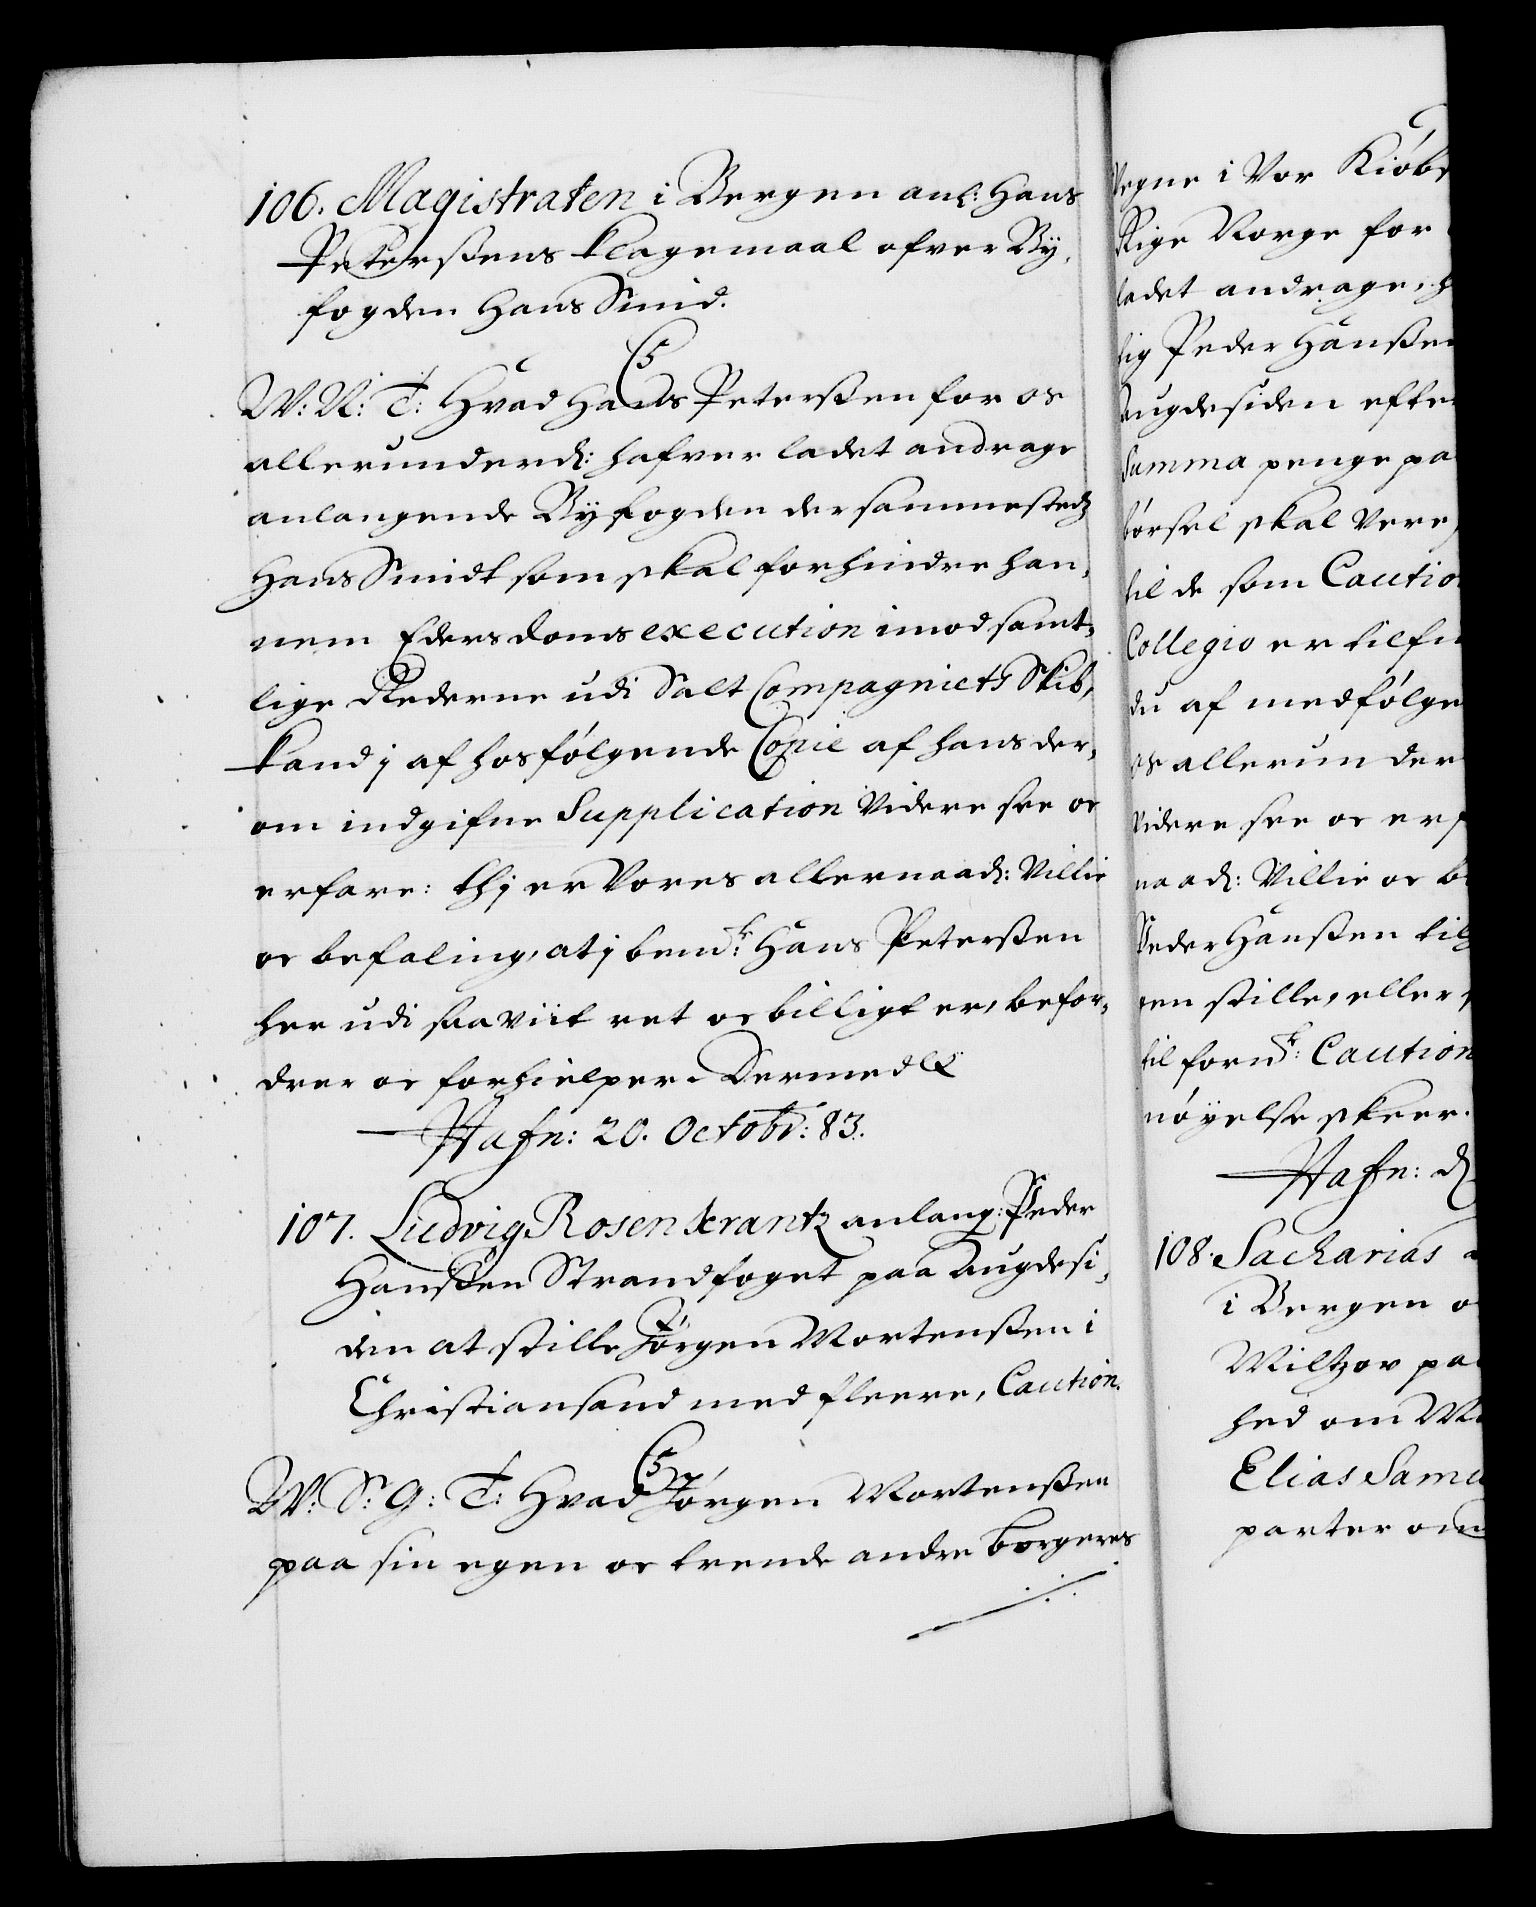 106. Magistraten i Bergen anl: Hans
Peterßens klagemaal ofver By,
fogden Hans Smid.
C5
W: U: T: Hvad Hans Peterßen for os
allerunderd: hafver ladet andrage
anlangende Byfogden dersammestedz
Hans Smidt som skal forhindre han,
nem Eders doms execution imod samt,
lige Rederne udi Salt Compagniets Skib,
kand j af hosfølgende Copie af hans der,
om indgifne Supplication Videre see oc
erfare: thj er Vores allernaad: Villie
oc befaling, at j bemd:te Hans Peterßen
her udi saa viit ret oc billigt er, befor,
drer oc forhielper. Dermed &
Hafn: 20. Octobr: 83.
107. Ludvig Rosenkrantz anlang: Peder
Hanßen Strandfoget paa Augdesi,
den at stille Jørgen Mortenßen i
Christiansand med fleere, Caution.
C5
W: S: G: T: Hvad Jørgen Mortenßen
paa sin egen oc trende andre borgeres
Vegne i Vor Kiøbs
Rige Norge for
ladet andrage, h
lig Peder Hanßen
Augdesiden efter
Summa penge pa
børsel skal Vere,
til de som Cautio
Collegio er tilfu
du af medfølge
os allerunder
Videre see oc erf
naad: Villie oc be
Peder Hanßen tilh
gen stille, eller
til fornd:te Caution
nøyelse skeer.
Hafn: d
108. Sacharias a
i Bergen o
Miltzov pa
hed om M
Elias Samu
parter om